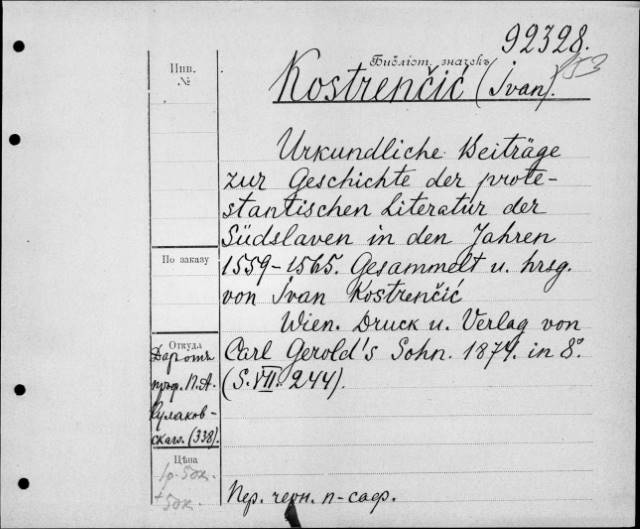 92328.
Инв.
№
Библіот. значокъ
Kostrenčić (Ivan).
Urkundliche Beiträge
zur Geschichte der prote-
stantischen Literatur der
Südslaven in den Jahren
По заказу
1559-1565. Gesammelt u. hrsg.
von Ivan Kostrenčić
Wien. Druck u. Verlag von
Откуда
Carl Gerold's Sohn. 1874. in 8°.
(S. VII. 244).
Даръ отъ
проф. П. А.
Кулаков-
скаго. (338).
Цѣна
1р. 50к.
+ 50к.
Пер. черн. п-саф.